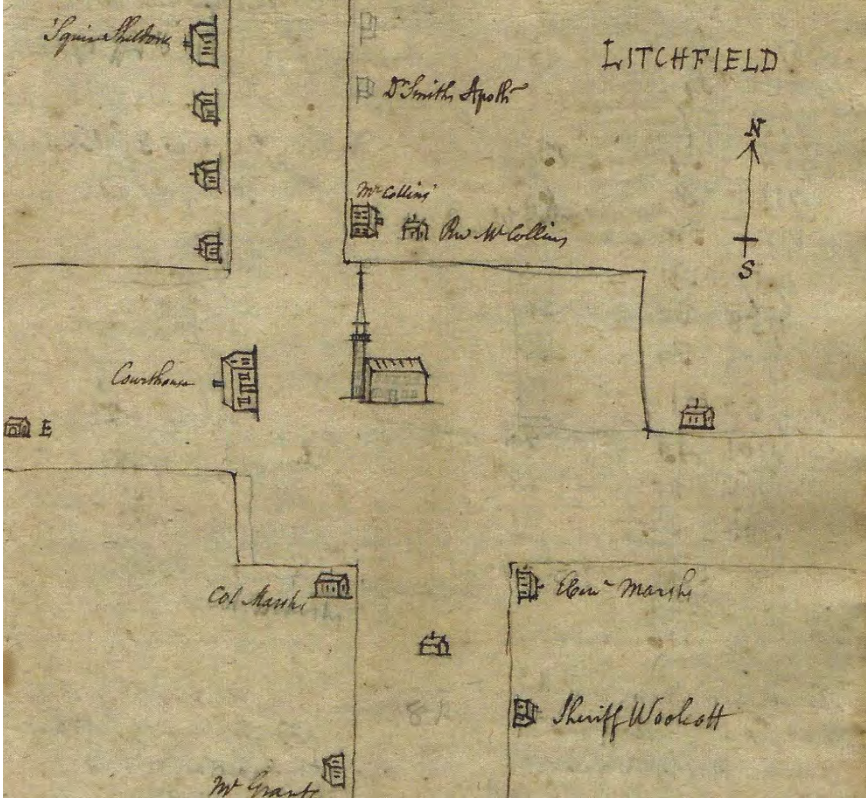 'Squire Sheldons
LITCHFIELD
Dr Smiths Apoth
N
Mr Collins'
Rev Mr Collins
S
Courthouse
E
Col Marshs
Ebenr Marshs
Sheriff Woolcott
Mr Grants